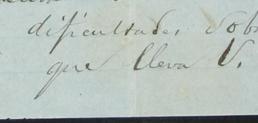 dificultades sob
que lleva V.